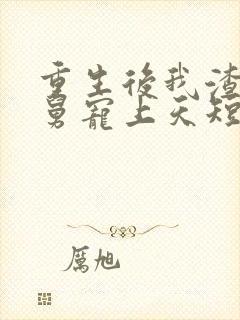 重生後我渣
舅寵上天短
厲旭